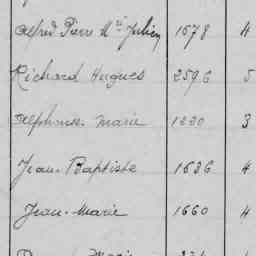 Alfred Pierre Mie Julien 1678 4
Richard Hugues 2596 5
Alphonse Marie 1330 3
Jean Baptiste 1636 4
Jean-Marie 1660 4
Marie